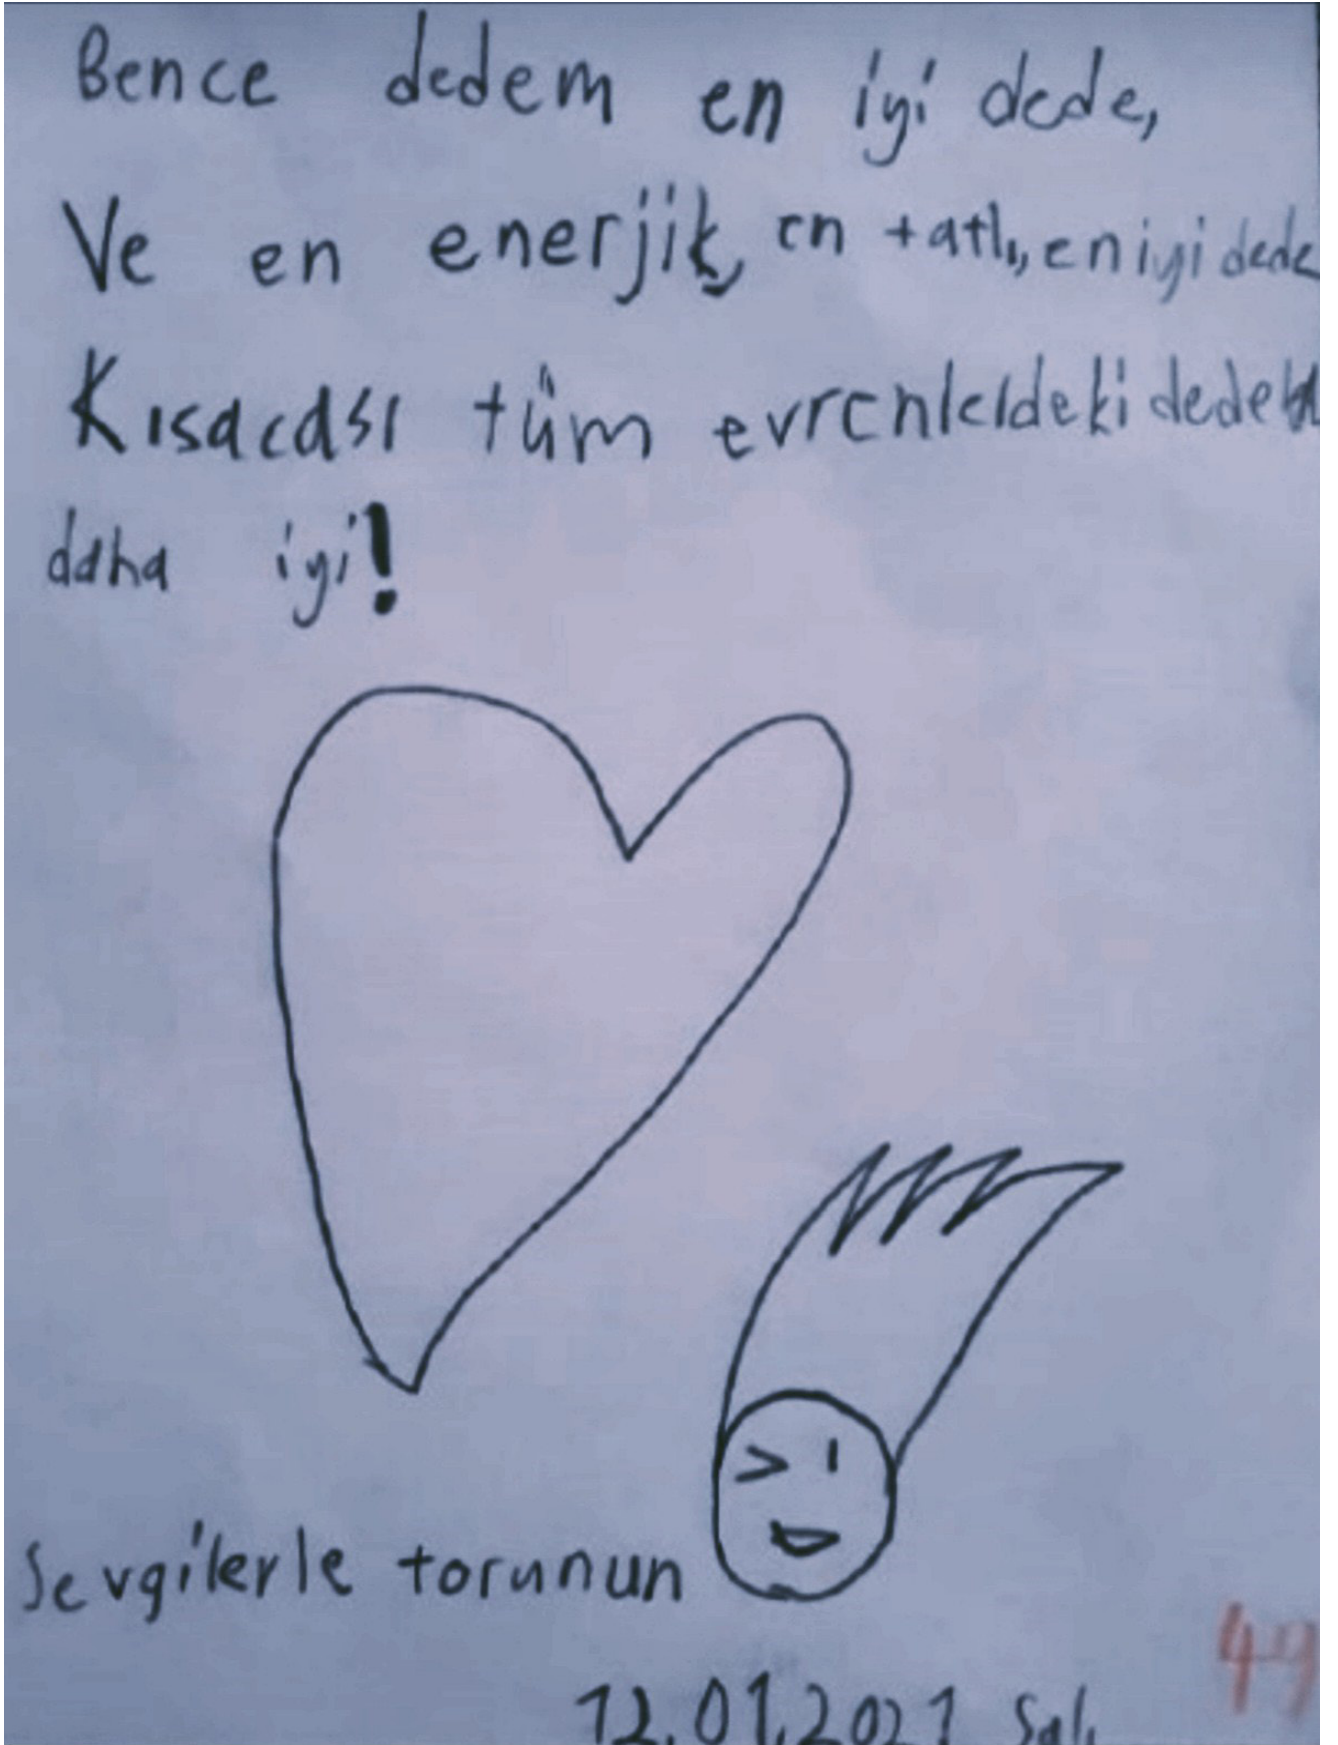 Bence dedem en iyi dede,
Ve en enerjik, en tatlı, en iyi dede
Kısacası tüm evrenlerdeki
daha iyi!
Sevgilerle torunun
12.01.2021 Salı
49